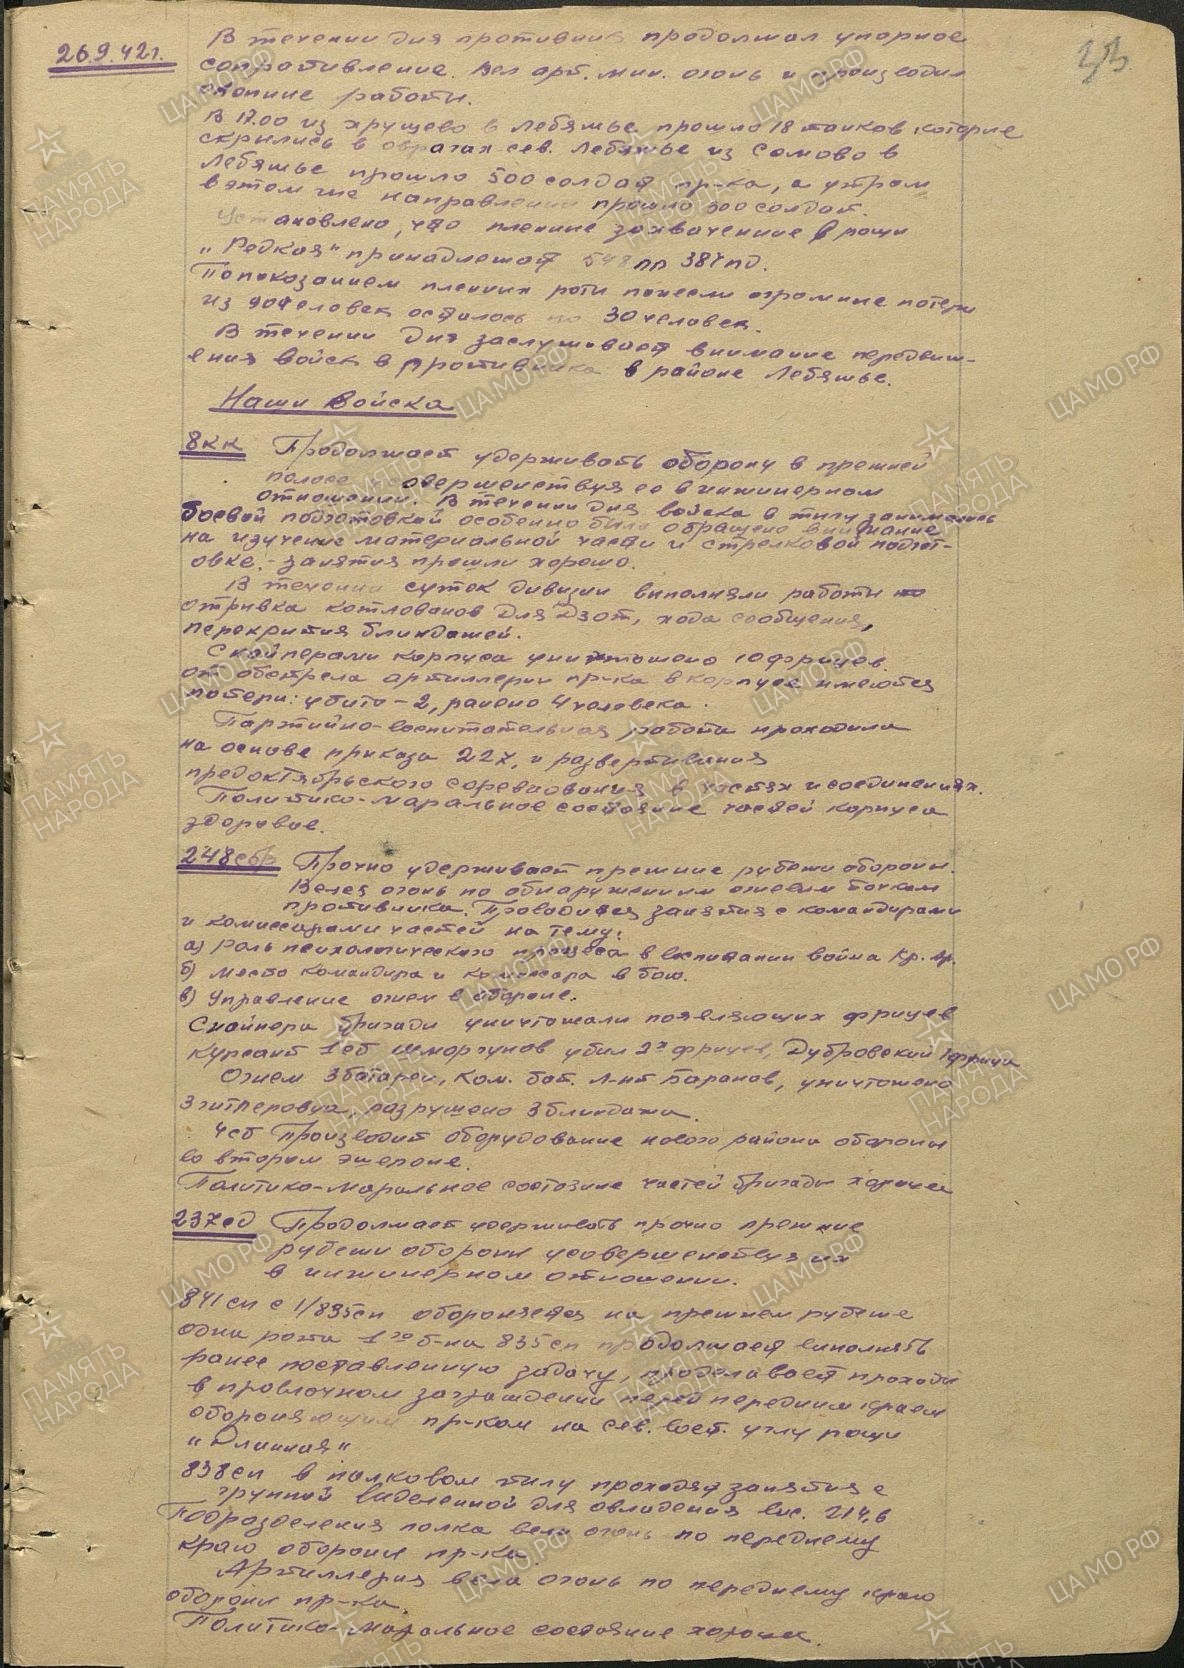 26.9.42г.
В течении дня противник продолжал упорное
сопротивление. Вел арт. мин. огонь и производил
окопные работы.
В 17.00 из Хрущево в Лебяжье прошло 18 танков которые
скрылись в оврагах сев. Лебяжье из Сомово в
Лебяжье прошло 500 солдат пр-ка, а утром
в этом же направлении прошло 300 солдат.
Установлено, что пленные захваченные в рощи
"Редкая" принадлежат 548 пп 387 пд.
По показанием пленных роты понесли огромные потери
из 90 человек осталось по 30 человек.
В течении дня заслуживает внимание передвиж-
ения войск в противника в районе Лебяжье.
Наши войска
8кк Продолжает удерживать оборону в прежней
полосе совершенствуя ее в инжинерном
отношении. В течении дня войска в тылу занимались
боевой подготовкой особенно было обращено внимание
на изучение материальной части и стрелковой подгот-
овке. - занятия прошли хорошо.
В течении суток дивизии выполняли работы по
отрывка котлованов для Дзот, хода сообщения,
перекрытия блиндажей.
Снайперами корпуса уничтожено 10 фрицев.
от обстрела артиллерии пр-ка в корпусе имеются
потери: убито - 2, ранено 4 человека.
Партийно-воспитательная работа проходила
на основе приказа 227, и развертывания
предоктябрьского соревнования в частях и соединениях.
Политико-маральное состояние частей корпуса
здоровое.
248 сбр Прочно удерживает прежние рубежи обороны.
Велся огонь по обнаруженным огневым точкам
противника. Проводятся занятия с командирами
и комиссарами частей на тему:
а) Роль психологического процеса в воспитании война Кр. Ар.
б) Место командира и комиссара в бою.
в) Управление огнем в обороне.
Снайпера бригады уничтожали появляющих фрицев
курсант 1 сб Шморгунов убил 2х фрицев, Дубровский 1 фрица
Огнем 3 батареи, ком. бат. л-нт Баранов, уничтожено
3 гитлеровца, разрушено 3 блиндажа.
4сб Производит оборудование нового района обороны
во втором эшелоне.
Политико-маральное состояние частей бригады хорошее
237сд Продолжает удерживать прочно прежние
рубежи обороны усовершенствуя их
в инжинерном отношении.
841 сп с 1/835сп обороняется на прежнем рубеже
одна рота 1го б-на 835сп продолжает выполнять
ранее поставленную задачу, проделывает проходы
в проволочном заграждении перед передним краем
обороняющим пр-ком на сев. вост. углу рощи
"Длинная"
838сп в полковом тылу проходят занятия с
группой выделенной для овладения выс. 214,6
Подразделения полка вели огонь по переднему
краю обороны пр-ка.
Артиллерия вела огонь по переднему краю
обороны пр-ка.
Политико-маральное состояние хорошее.